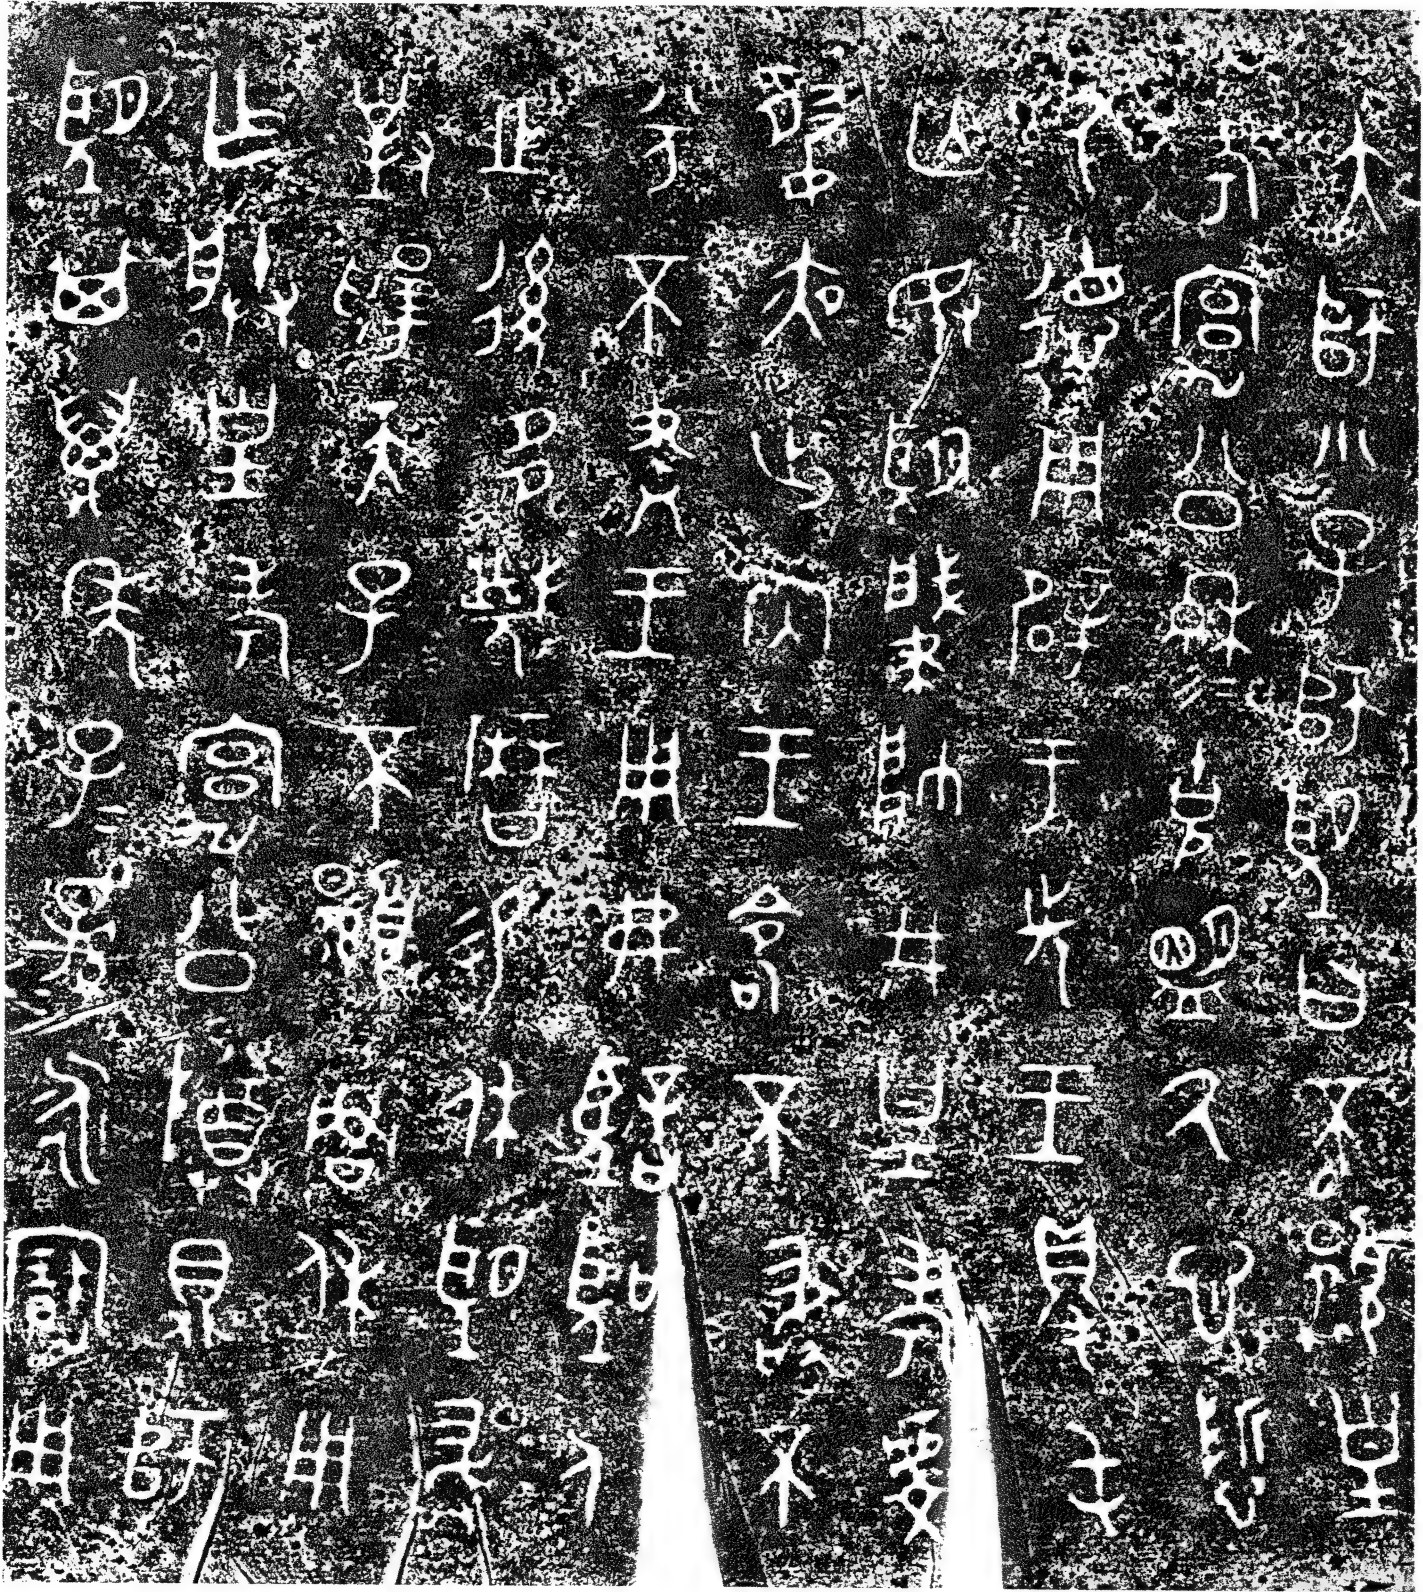 大師小子師望曰不顯皇
考宄公穆=克盟厥心哲
厥德用辟于先王得屯
亡敃望肇帥井皇考虔
夙夜出內王命不敢不
㒸不㚔王用弗忘聖人
之後多蔑曆易休望敢
對揚天子不顯魯休用
乍朕皇考宄公尊鼎師
望其萬年子=孫=永寶用